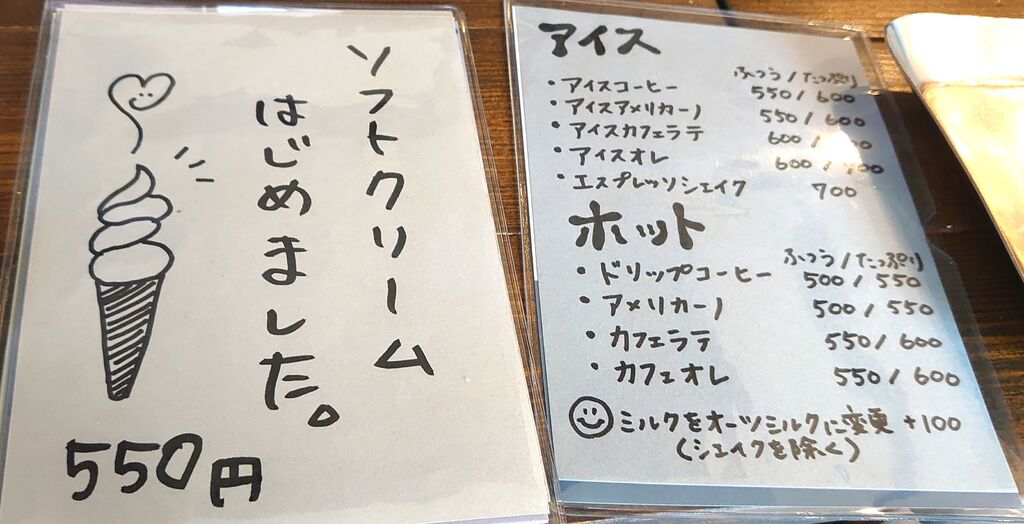 ソフトクリーム
はじめました。
550円
アイス
ふつう/たっぷり
・アイスコーヒー 550/600
・アイスアメリカーノ 550/600
・アイスカフェラテ 600/
・アイスオレ 600/700
・エスプレッソシェイク 700
ホット
ふつう/たっぷり
・ドリップコーヒー 500/550
・アメリカーノ 500/550
・カフェラテ 550/600
・カフェオレ 550/600
ミルクをオーツミルクに変更 +100
(シェイクを除く)